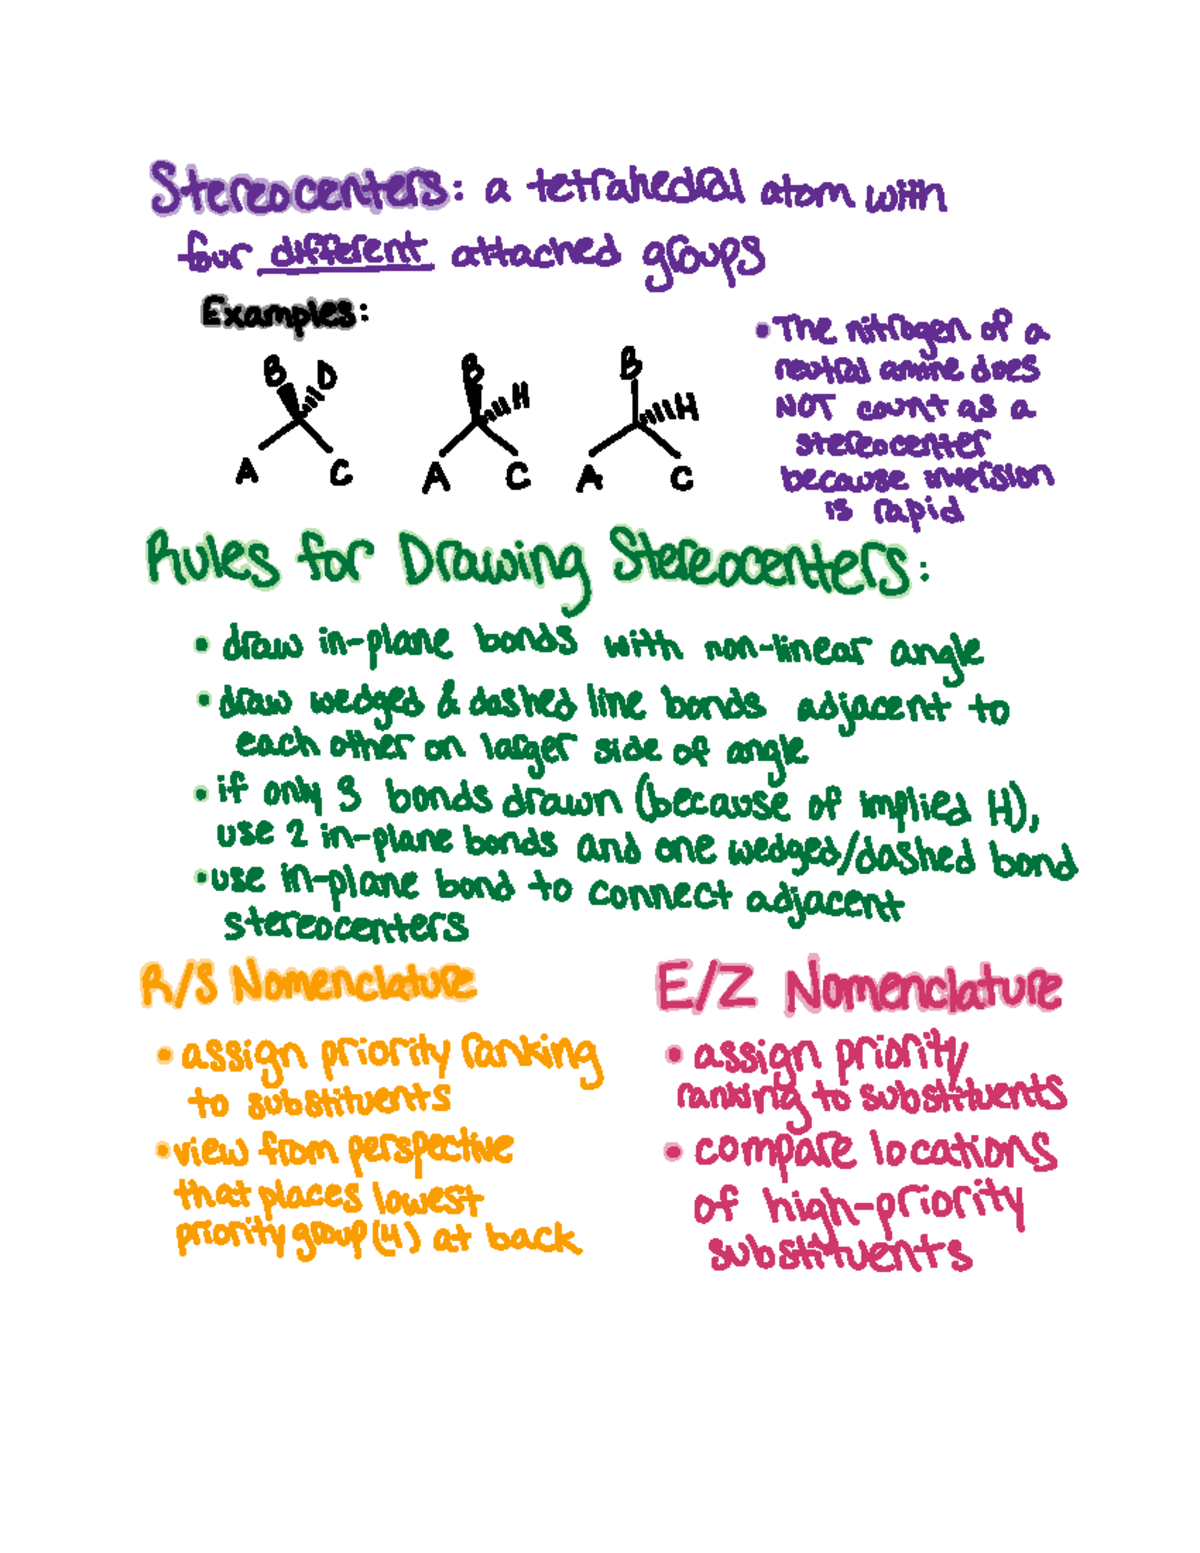 Stereocenters: a tetrahedral atom with
four different attached groups
Examples:
B D
A C
B H
A C
B H
A C
• The nitrogen of a
neutral amine does
NOT count as a
stereocenter
because inversion
is rapid
Rules for Drawing Stereocenters:
• draw in-plane bonds with non-linear angle
• draw wedged & dashed line bonds adjacent to
each other on larger side of angle
• if only 3 bonds drawn (because of implied H),
use 2 in-plane bonds and one wedged/dashed bond
• use in-plane bond to connect adjacent
stereocenters
R/S Nomenclature
• assign priority ranking
to substituents
• view from perspective
that places lowest
priority group (4) at back
E/Z Nomenclature
• assign priority
ranking to substituents
• compare locations
of high-priority
substituents